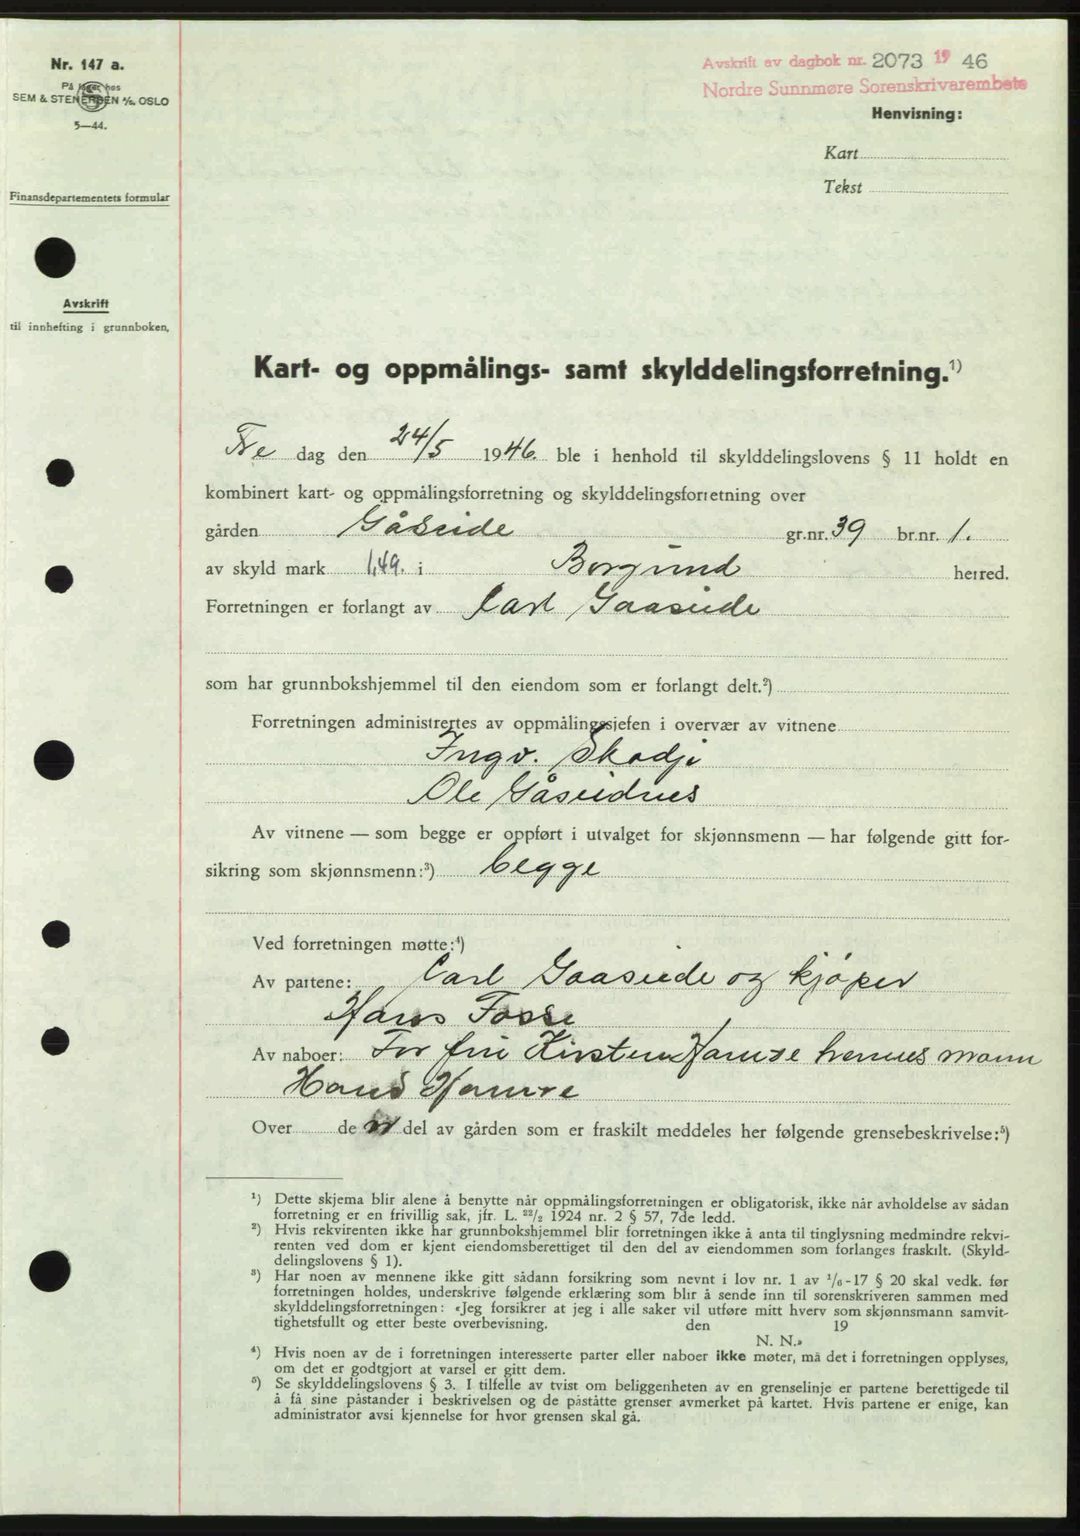 Nr. 147 a.
På lager hos
SEM & STENERSEN A/S. OSLO
5—44.
Finansdepartementets formular
Avskrift
til innhefting i grunnboken.
Avskrift av dagbok nr. 2073 19 46
Nordre Sunnmøre Sorenskrivarembete
Henvisning:
Kart
Tekst
Kart- og oppmålings- samt skylddelingsforretning.¹)
Fre dag den 24/5 1946. ble i henhold til skylddelingslovens § 11 holdt en
kombinert kart- og oppmålingsforretning og skylddelingsforretning over
gården Gåseide gr.nr. 39 br.nr. 1.
av skyld mark 1,49. i Borgund herred.
Forretningen er forlangt av Carl Gaaseide
som har grunnbokshjemmel til den eiendom som er forlangt delt.²)
Forretningen administrertes av oppmålingssjefen i overvær av vitnene
Ingv. Skodje
Ole Gåseidnes
Av vitnene — som begge er oppført i utvalget for skjønnsmenn — har følgende gitt for-
sikring som skjønnsmenn:³) begge
Ved forretningen møtte:⁴)
Av partene: Carl Gaaseide og kjøper
Hans Fosse
Av naboer: For fru Kirsten Hamre hennes mann
Hans Hamre
Over de n del av gården som er fraskilt meddeles her følgende grensebeskrivelse:⁵)
¹) Dette skjema blir alene å benytte når oppmålingsforretningen er obligatorisk, ikke når avholdelse av sådan
forretning er en frivillig sak, jfr. L. 22/2 1924 nr. 2 § 57, 7de ledd.
²) Hvis rekvirenten ikke har grunnbokshjemmel blir forretningen ikke å anta til tinglysning medmindre rekvi-
renten ved dom er kjent eiendomsberettiget til den del av eiendommen som forlanges fraskilt. (Skyld-
delingslovens § 1).
³) Har noen av mennene ikke gitt sådann forsikring som nevnt i lov nr. 1 av 1/6-17 § 20 skal vedk. før
forretningen holdes, underskrive følgende erklæring som blir å sende inn til sorenskriveren sammen med
skylddelingsforretningen: «Jeg forsikrer at jeg i alle saker vil utføre mitt hverv som skjønnsmann samvit-
tighetsfullt og etter beste overbevisning. den 19
N. N.»
⁴) Hvis noen av de i forretningen interesserte parter eller naboer ikke møter, må det i forretningen opplyses,
om det er godtgjort at varsel er gitt dem.
⁵) Se skylddelingslovens § 3. I tilfelle av tvist om beliggenheten av en grenselinje er partene berettigede til
å få sine påstander i beskrivelsen og de påståtte grenser avmerket på kartet. Hvis partene er enige, kan
administrator avsi kjennelse for hvor grensen skal gå.